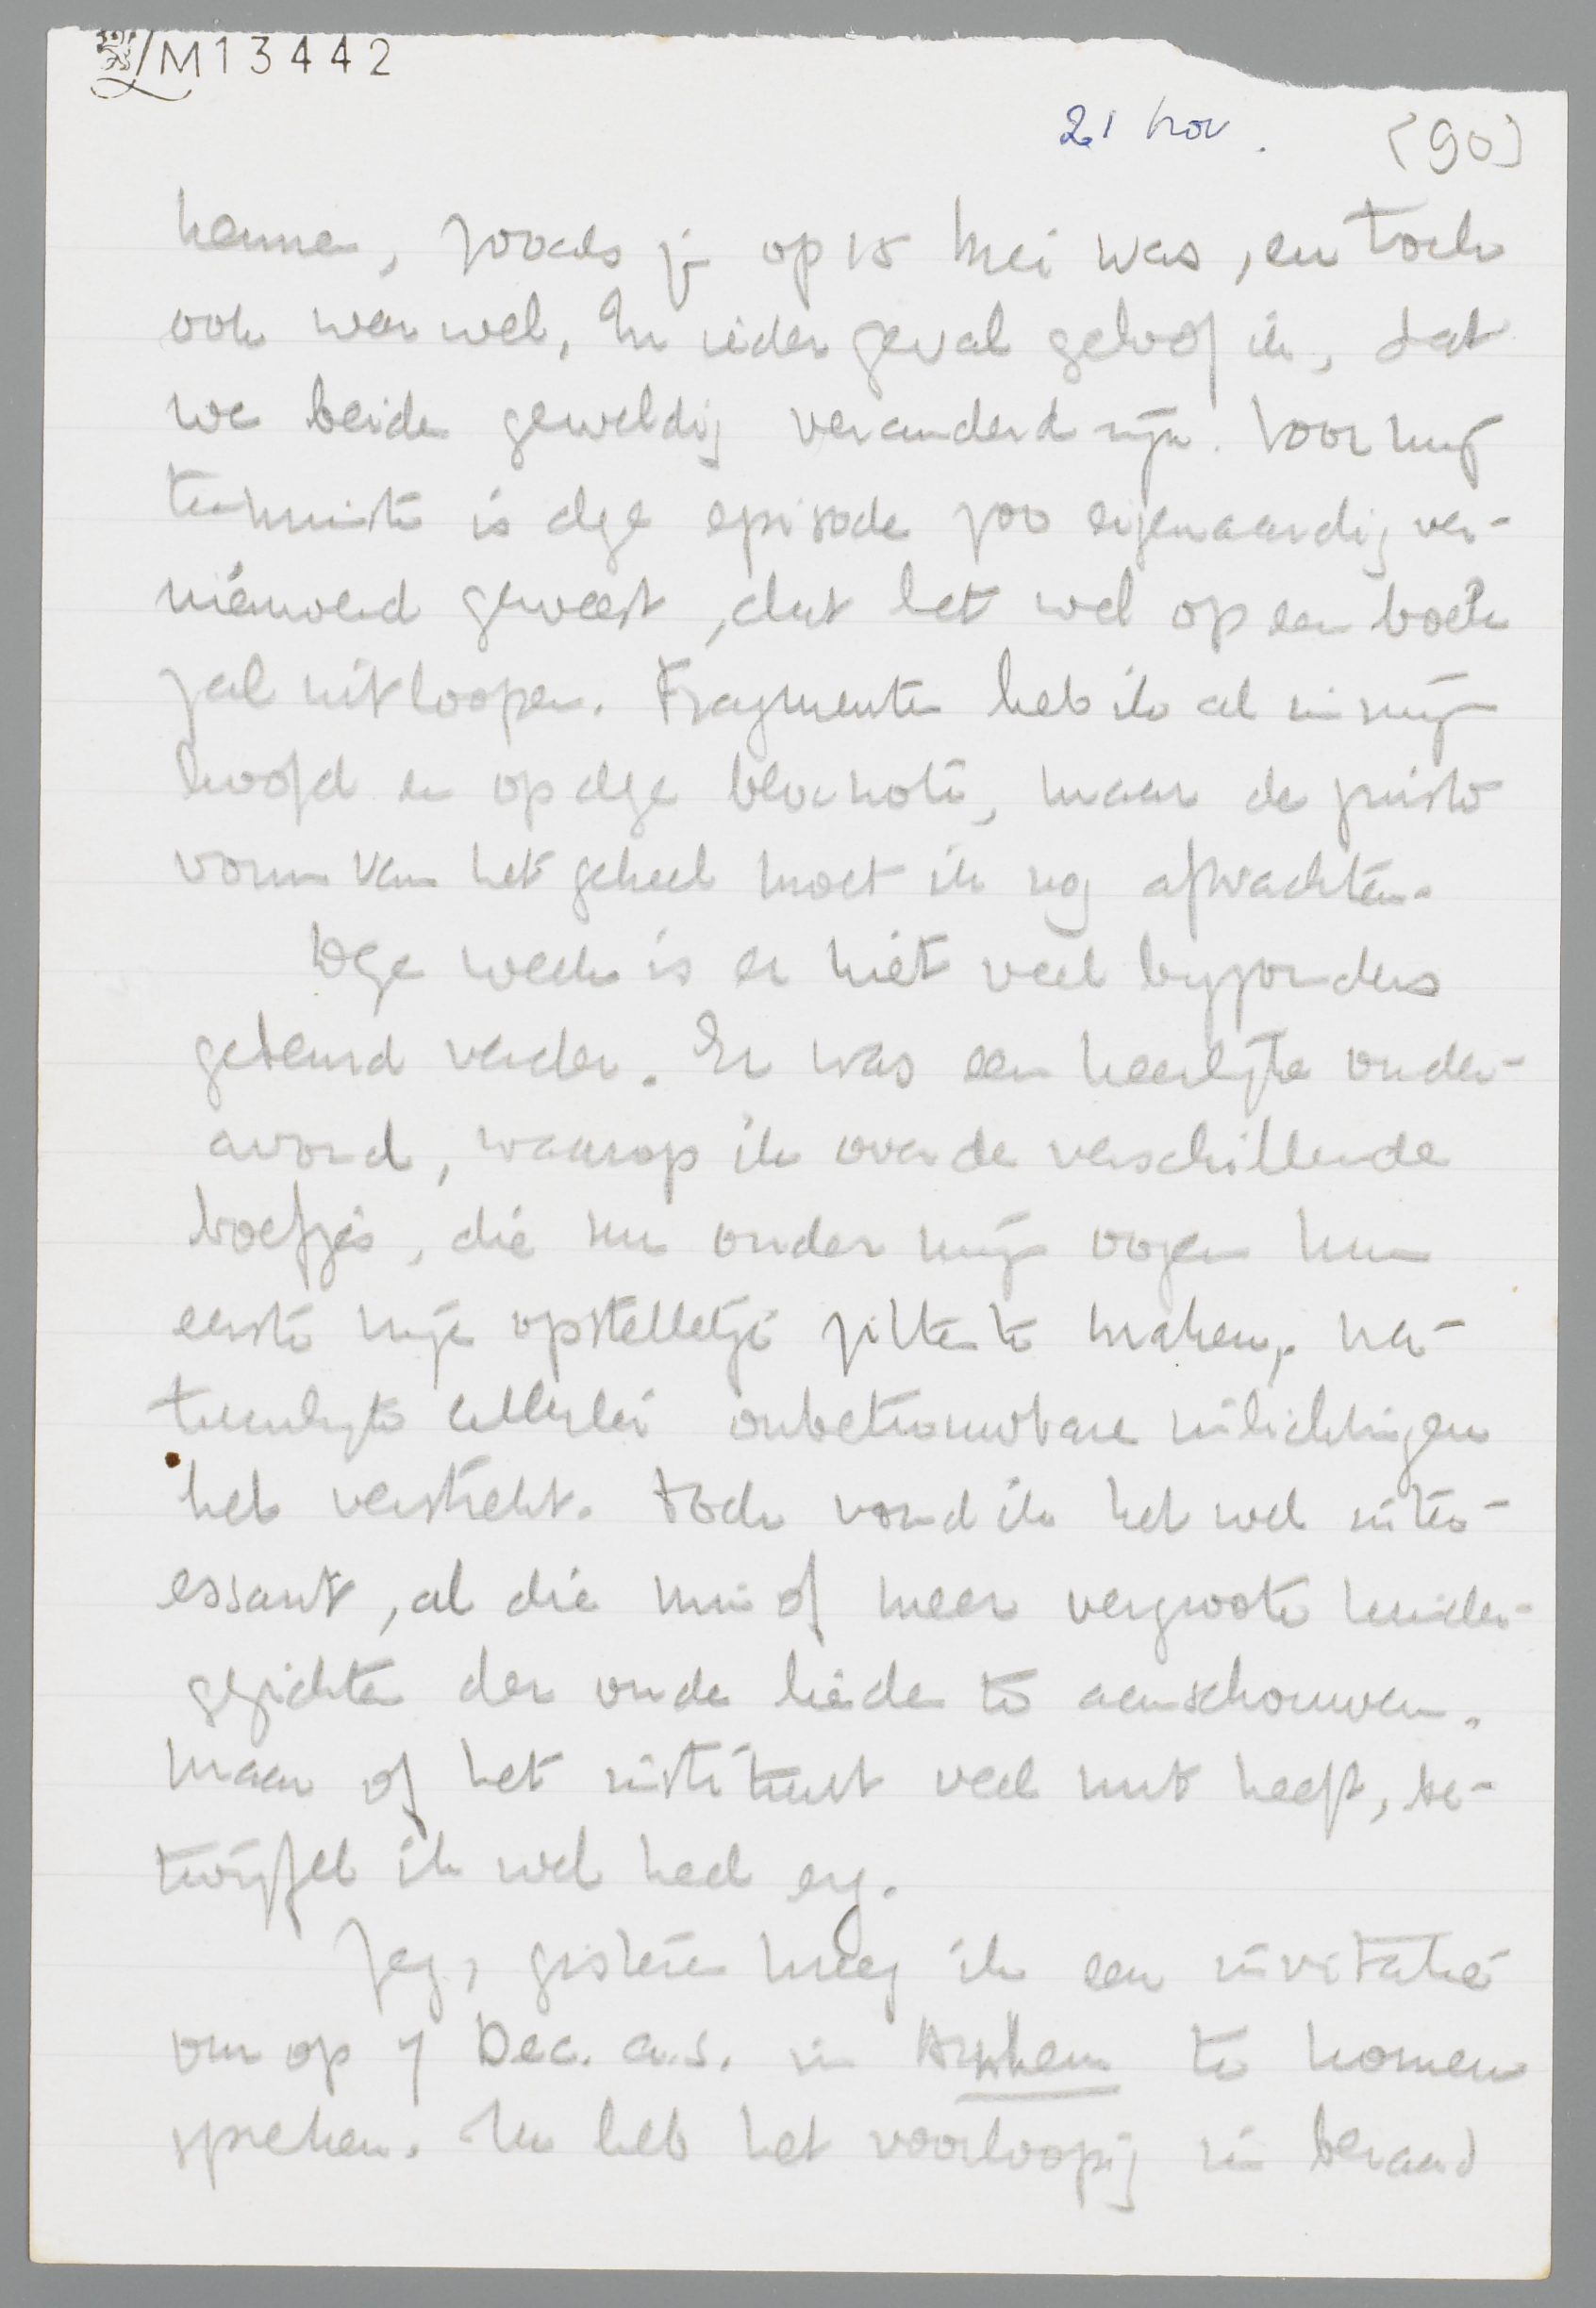 M13442
21 Nov. [90]
kennen, zooals je op 15 Mei was, en toch
ook weer wel, In ieder geval geloof ik, dat
we beide geweldig veranderd zijn. Voor mij
tenminste is deze episode zoo eigenaardig ver-
nieuwend geweest, dat het wel op een boek
zal uitloopen. Fragmenten heb ik al in mijn
hoofd en op deze blocnote, maar de juiste
vorm van het geheel moet ik nog afwachten.
Deze week is er niet veel byzonders
gebeurd verder. Er was een heerlijke ouder-
avond, waarop ik over de verschillende
boefjes, die nu onder mijn oogen hun
eerste vrije opstelletje zitten te maken, na-
tuurlijk allerlei onbetrouwbare inlichtingen
heb verstrekt. Toch vond ik het wel inter-
essant, al die min of meer vergroote kinder-
gezichten der oude lieden te aanschouwen.
Maar of het instituut veel nut heeft, be-
twijfel ik wel heel erg.
Zeg, gisteren kreeg ik een invitatie
om op 7 Dec. a.s. in Arnhem te komen
spreken. Ik heb het voorloopig in beraad